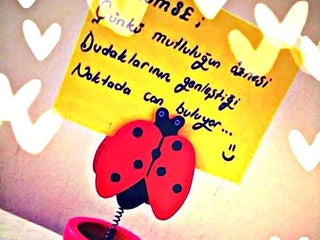 Çünkü mutluluğun öznesi
Dudaklarının genleştiği
Noktada can buluyor...